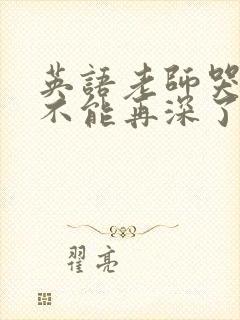 英語老師哭
不能再深了
翟亮